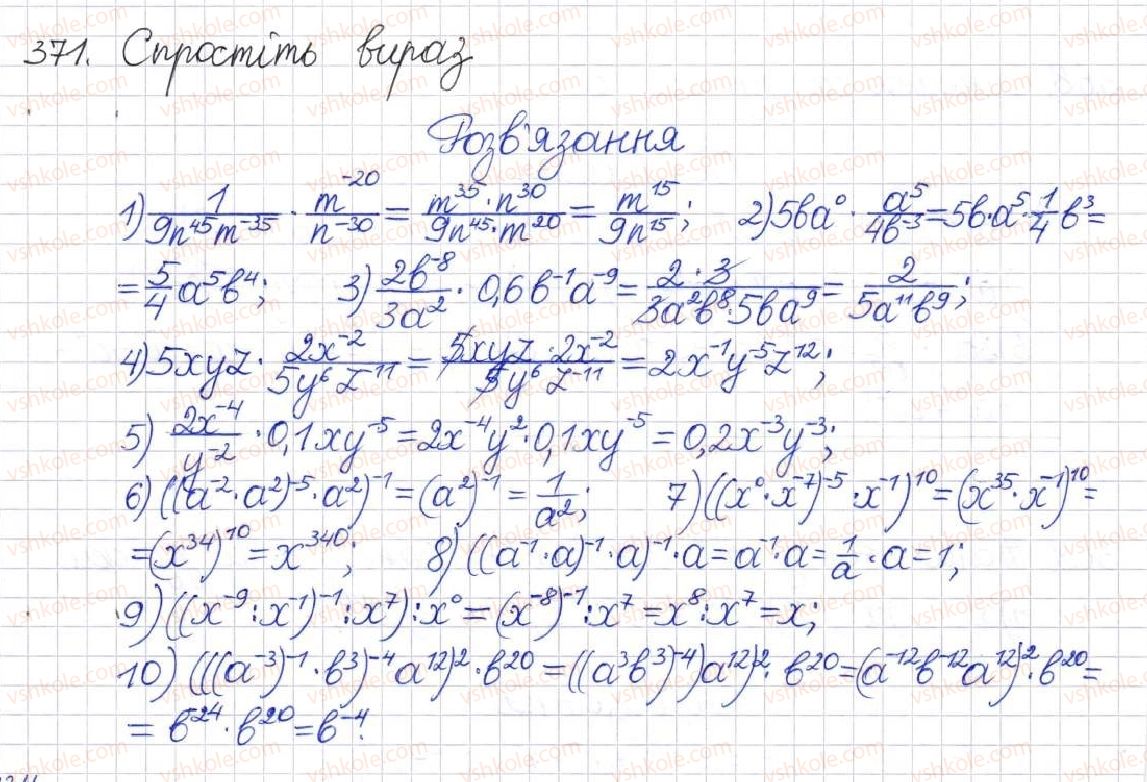 371. Спростіть вираз
Розв'язання
1) 1/(9n⁴⁵m⁻³⁵) · m⁻²⁰/n⁻³⁰ = (m³⁵·n³⁰)/(9n⁴⁵·m²⁰) = m¹⁵/(9n¹⁵); 2) 5ba⁰ · a⁵/(4b⁻³) = 5b·a⁵·1/4 b³ =
= 5/4 a⁵b⁴; 3) 2b⁻⁸/(3a²) · 0,6b⁻¹a⁻⁹ = (2·3)/(3a²b⁸·5ba⁹) = 2/(5a¹¹b⁹);
4) 5xyz · 2x⁻²/(5y⁶z⁻¹¹) = (5xyz·2x⁻²)/(5y⁶z⁻¹¹) = 2x⁻¹y⁻⁵z¹²;
5) 2x⁻⁴/y⁻² · 0,1xy⁻⁵ = 2x⁻⁴y²·0,1xy⁻⁵ = 0,2x⁻³y⁻³;
6) ((a⁻²·a²)⁻⁵·a²)⁻¹ = (a²)⁻¹ = 1/a²; 7) ((x⁰·x⁻⁷)⁻⁵·x⁻¹)¹⁰ = (x³⁵·x⁻¹)¹⁰ =
= (x³⁴)¹⁰ = x³⁴⁰; 8) ((a⁻¹·a)⁻¹·a)⁻¹·a = a⁻¹·a = 1/a·a = 1;
9) ((x⁻⁹:x⁻¹)⁻¹:x⁷):x⁰ = (x⁻⁸)⁻¹:x⁷ = x⁸:x⁷ = x;
10) (((a⁻³)⁻¹·b³)⁻⁴a¹²)²·b²⁰ = ((a³b³)⁻⁴)a¹²)²·b²⁰ = (a⁻¹²b⁻¹²a¹²)²·b²⁰ =
= b⁻²⁴·b²⁰ = b⁻⁴.